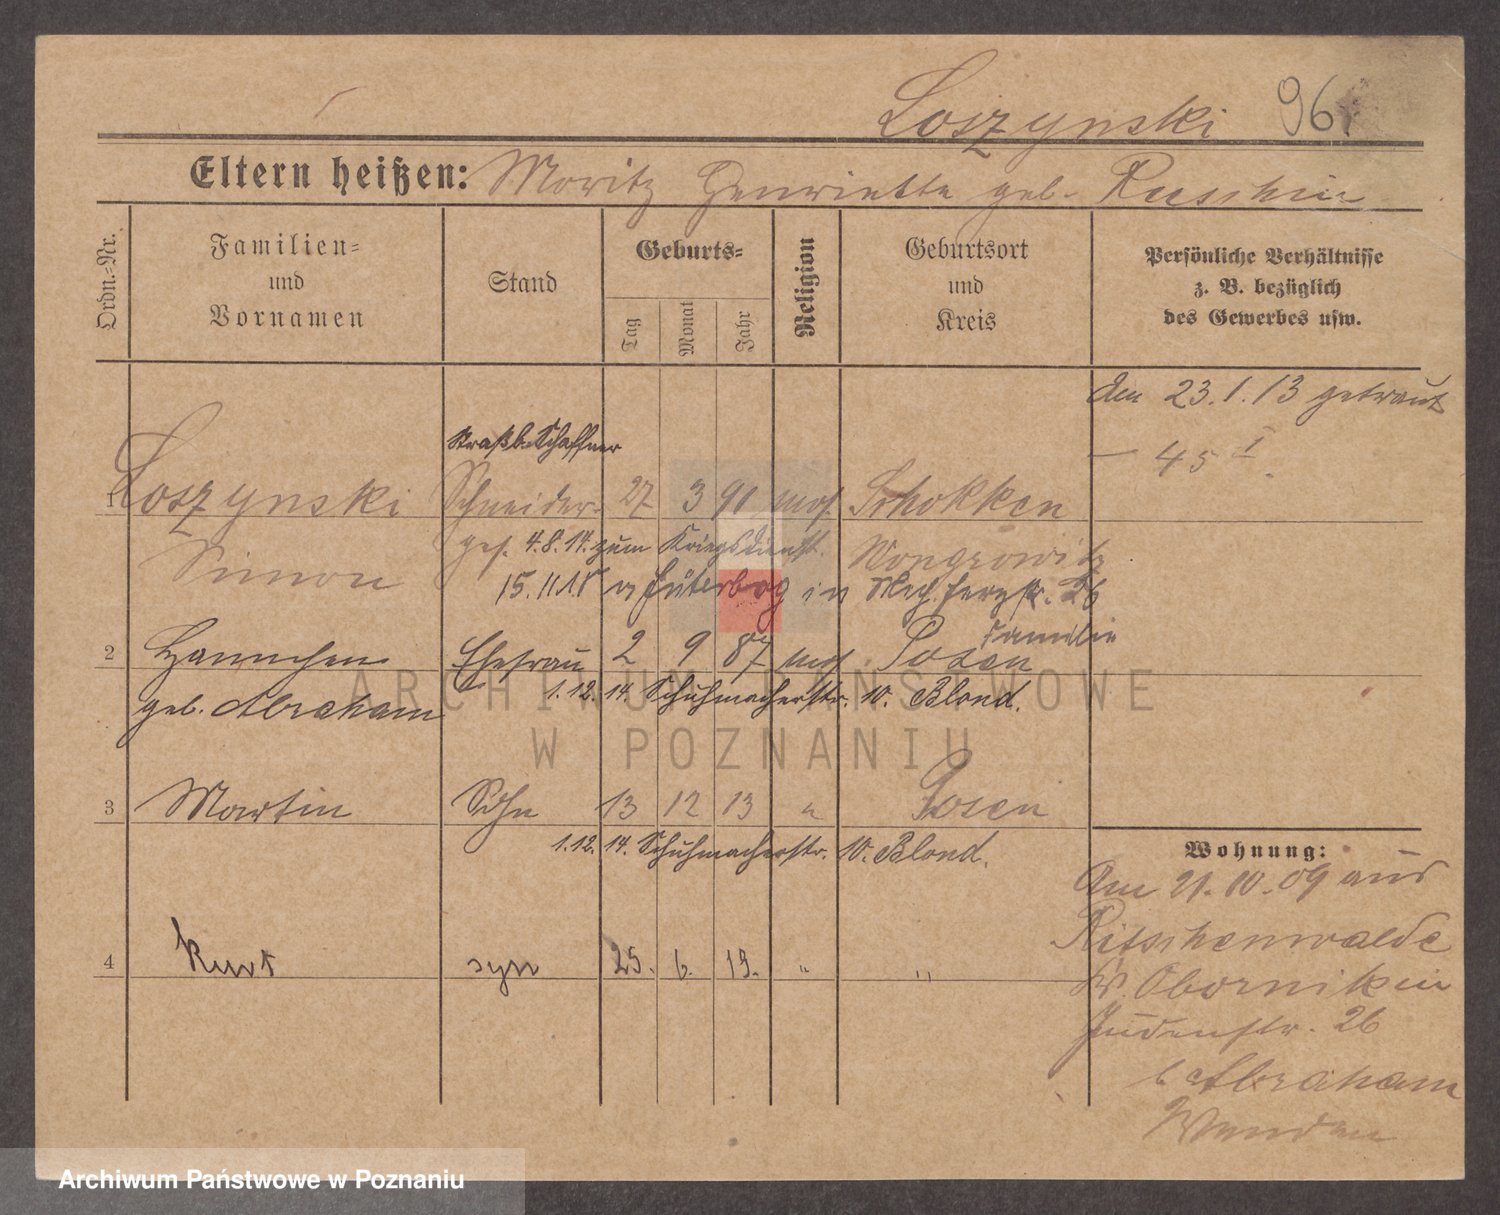 Loszynski 96
Eltern heißen: Moritz Henriette geb. Ruschin
Ordn.-Nr.
Familien-
und
Vornamen
Stand
Geburts-
Tag
Monat
Jahr
Religion
Geburtsort
und
Kreis
Persönliche Verhältnisse
z. B. bezüglich
des Gewerbes usw.
Am 23.1.13 getraut
— 45 I
Straßb. Schaffner
1 Loszynski Schneider 27 3 91 mos. Schokken
Simon
gest. 4.8.14. zum Kriegsdienst. Wongrowitz
15.11.18 Jüterbog in
Familie
2 Hannchen Ehefrau 2 9 87 mos. Posen
geb. Abraham
1.12.14. Schuhmacherstr. 10. Blond.
3 Martin Sohn 13 12 13 " Posen
1.12.14. Schuhmacherstr. 10. Blond.
4 Kurt syn 25. 6. 19. " "
Wohnung:
Am 21.10.09 aus
Ritschenwalde
Kr. Obornik ein
Judenstr. 26
b Abraham
Wenden
ARCHIWUM PAŃSTWOWE
W POZNANIU
Archiwum Państwowe w Poznaniu